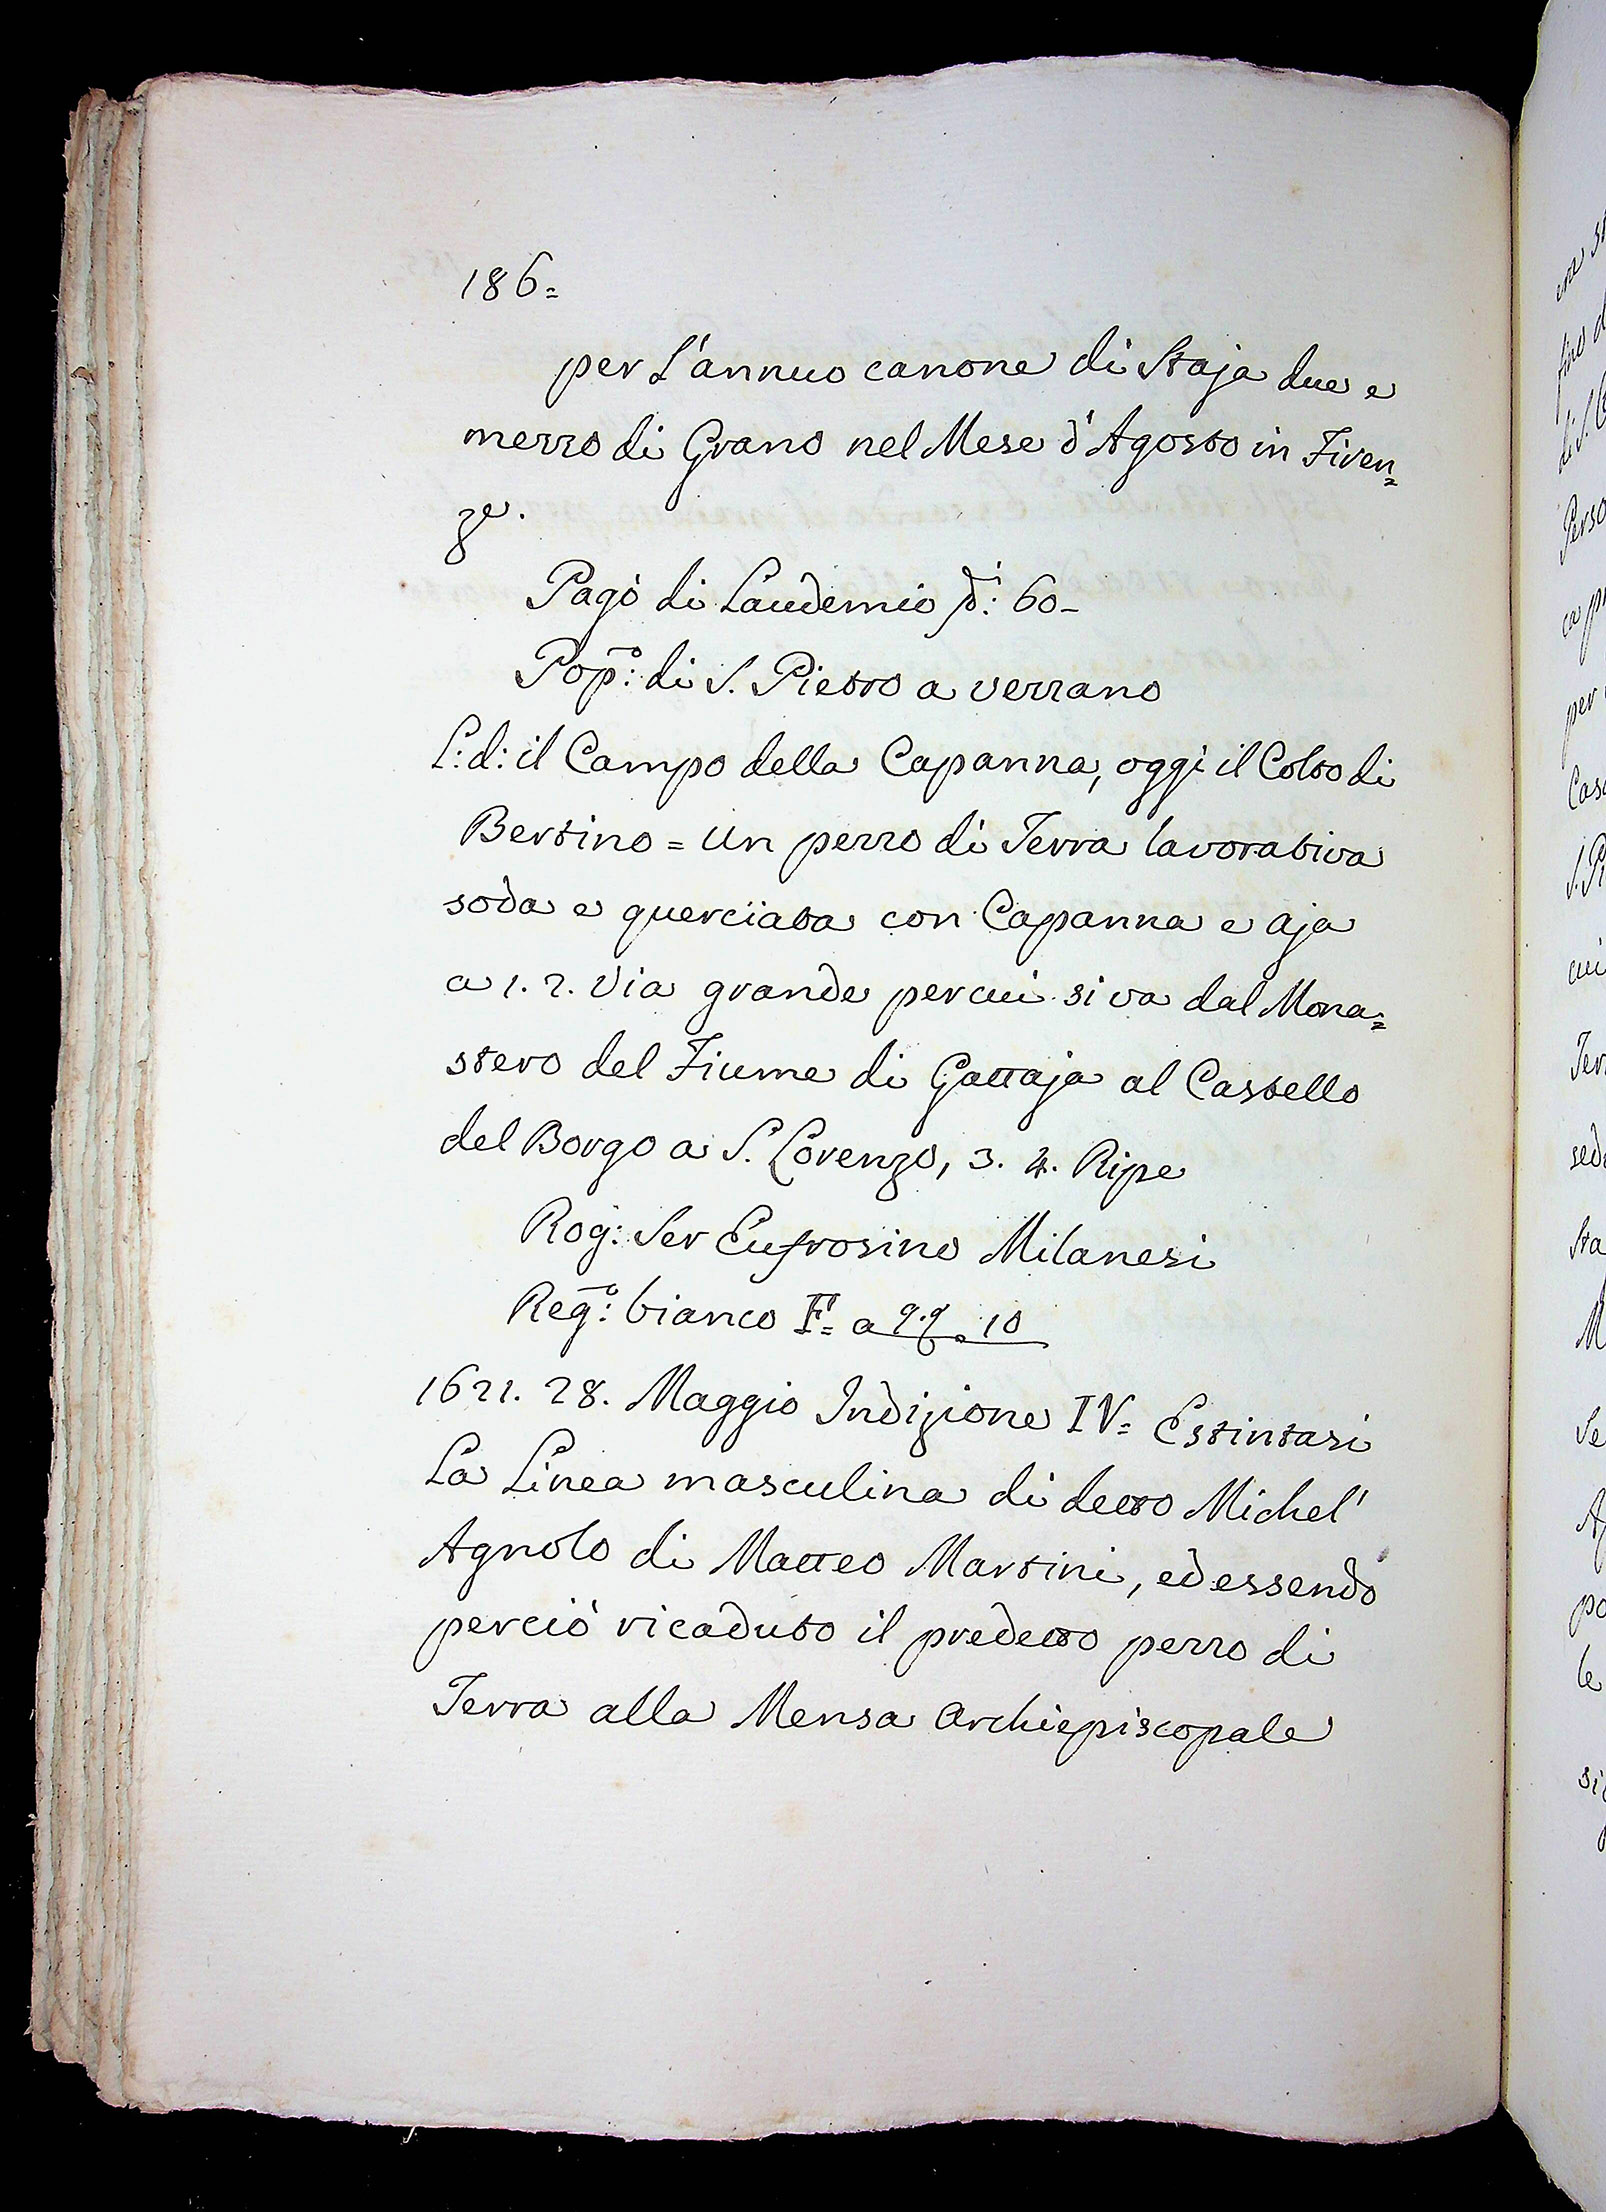 186=
per L'annuo canone di Staja due e
mezzo di Grano nel Mese d'Agosto in Firen=
ze.
Pagò di Laudemio 60-
Pop:o di S. Pietro a vezzano
L: d: il Campo della Capanna, oggi il Colto di
Bertino = Un pezzo di Terra lavorativa
soda e querciata con Capanna e aja
a 1. 2. Via grande per cui si va dal Mona=
stero del Fiume di Gattaja al Castello
del Borgo a S. Lorenzo, 3. 4. Ripe
Rog: Ser Eufrosino Milanesi
Reg:o bianco F= a 10
1621. 28. Maggio Indizione IV= Estintasi
La Linea masculina di detto Michel'
Agnolo di Matteo Martini, ed essendo
perciò ricaduto il predetto pezzo di
Terra alla Mensa Archiepiscopale